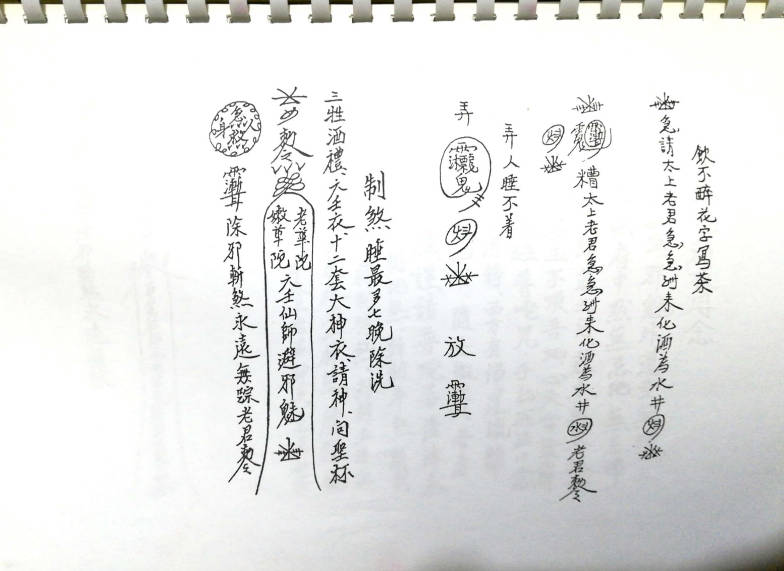 飲不醉花字寫茶
急請太上老君急急到來化酒為水井
糟太上老君急急到來化酒為水井 老君敕令
弄人睡不着
弄
放
制煞睡最多七晚除洗
三牲酒禮、六壬衣、十二套大神衣、請神、问聖杯
敕令
老草院
嫩草院
六壬仙師避邪魅
除邪斬煞永遠無踪老君敕令